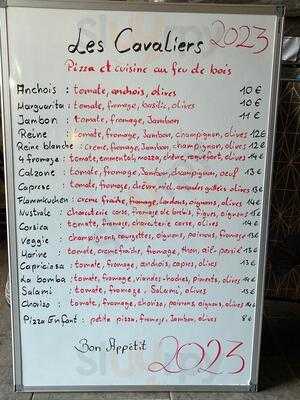 Les Cavaliers 2023
Pizza et cuisine au feu de bois
Anchois : tomate, anchois, olives 10 €
Marguarita : tomate, fromage, basilic, olives 10 €
Jambon : tomate, fromage, Jambon 11 €
Reine : tomate, fromage, Jambon, champignon, olives 12 €
Reine blanche : creme, fromage, Jambon, champignon, olives 12 €
4 fromage : tomate, emmental, mozza, chèvre, roquefort, olives 14 €
Calzone : tomate, fromage, Jambon, champignon, oeuf 13 €
Caprese : tomate, fromage, chèvre, miel, amandes grillées olives 13 €
Flammkuchen : creme fraiche, fromage, lardons, oignons, olives 14 €
Nustrale : charcuterie corse, fromage de brebis, figue, oignons
Corsica : tomate, fromage, charcuterie corse, olives 14 €
Veggie : champignons, courgettes, oignons, poivrons, fromage
Marine : creme fraiche, fromage, thon, ail-persil
Capricciosa : tomate, fromage, anchois, capres, olives 13 €
La bomba : tomate, fromage, viande-hachée, piments, olives 14 €
Salami : tomate, fromage, Salami, olives 13 €
Chorizo : tomate, fromage, chorizo, poivrons, oignons, olives
Pizza Enfant : petite pizza, fromage, Jambon, olives 8 €
Bon Appétit 2023